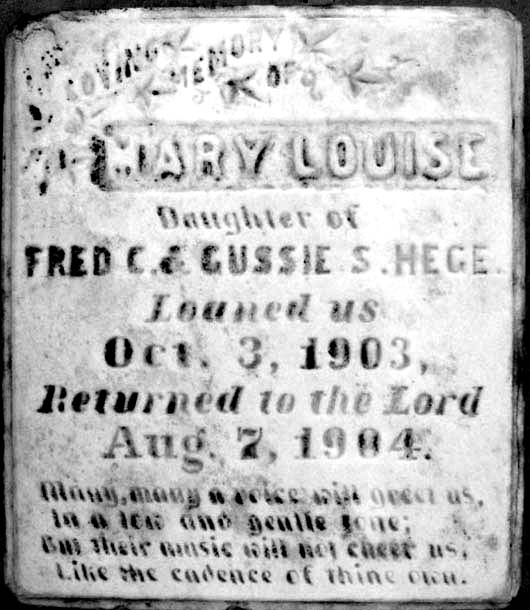 LOVING
MEMORY
OF
MARY LOUISE
Daughter of
FRED C. & GUSSIE S. HEGE.
Loaned us
Oct. 3, 1903,
Returned to the Lord
Aug. 7, 1904.
Many, many a voice will greet us,
In a low and gentle tone;
But their music will not cheer us,
Like the cadence of thine own.